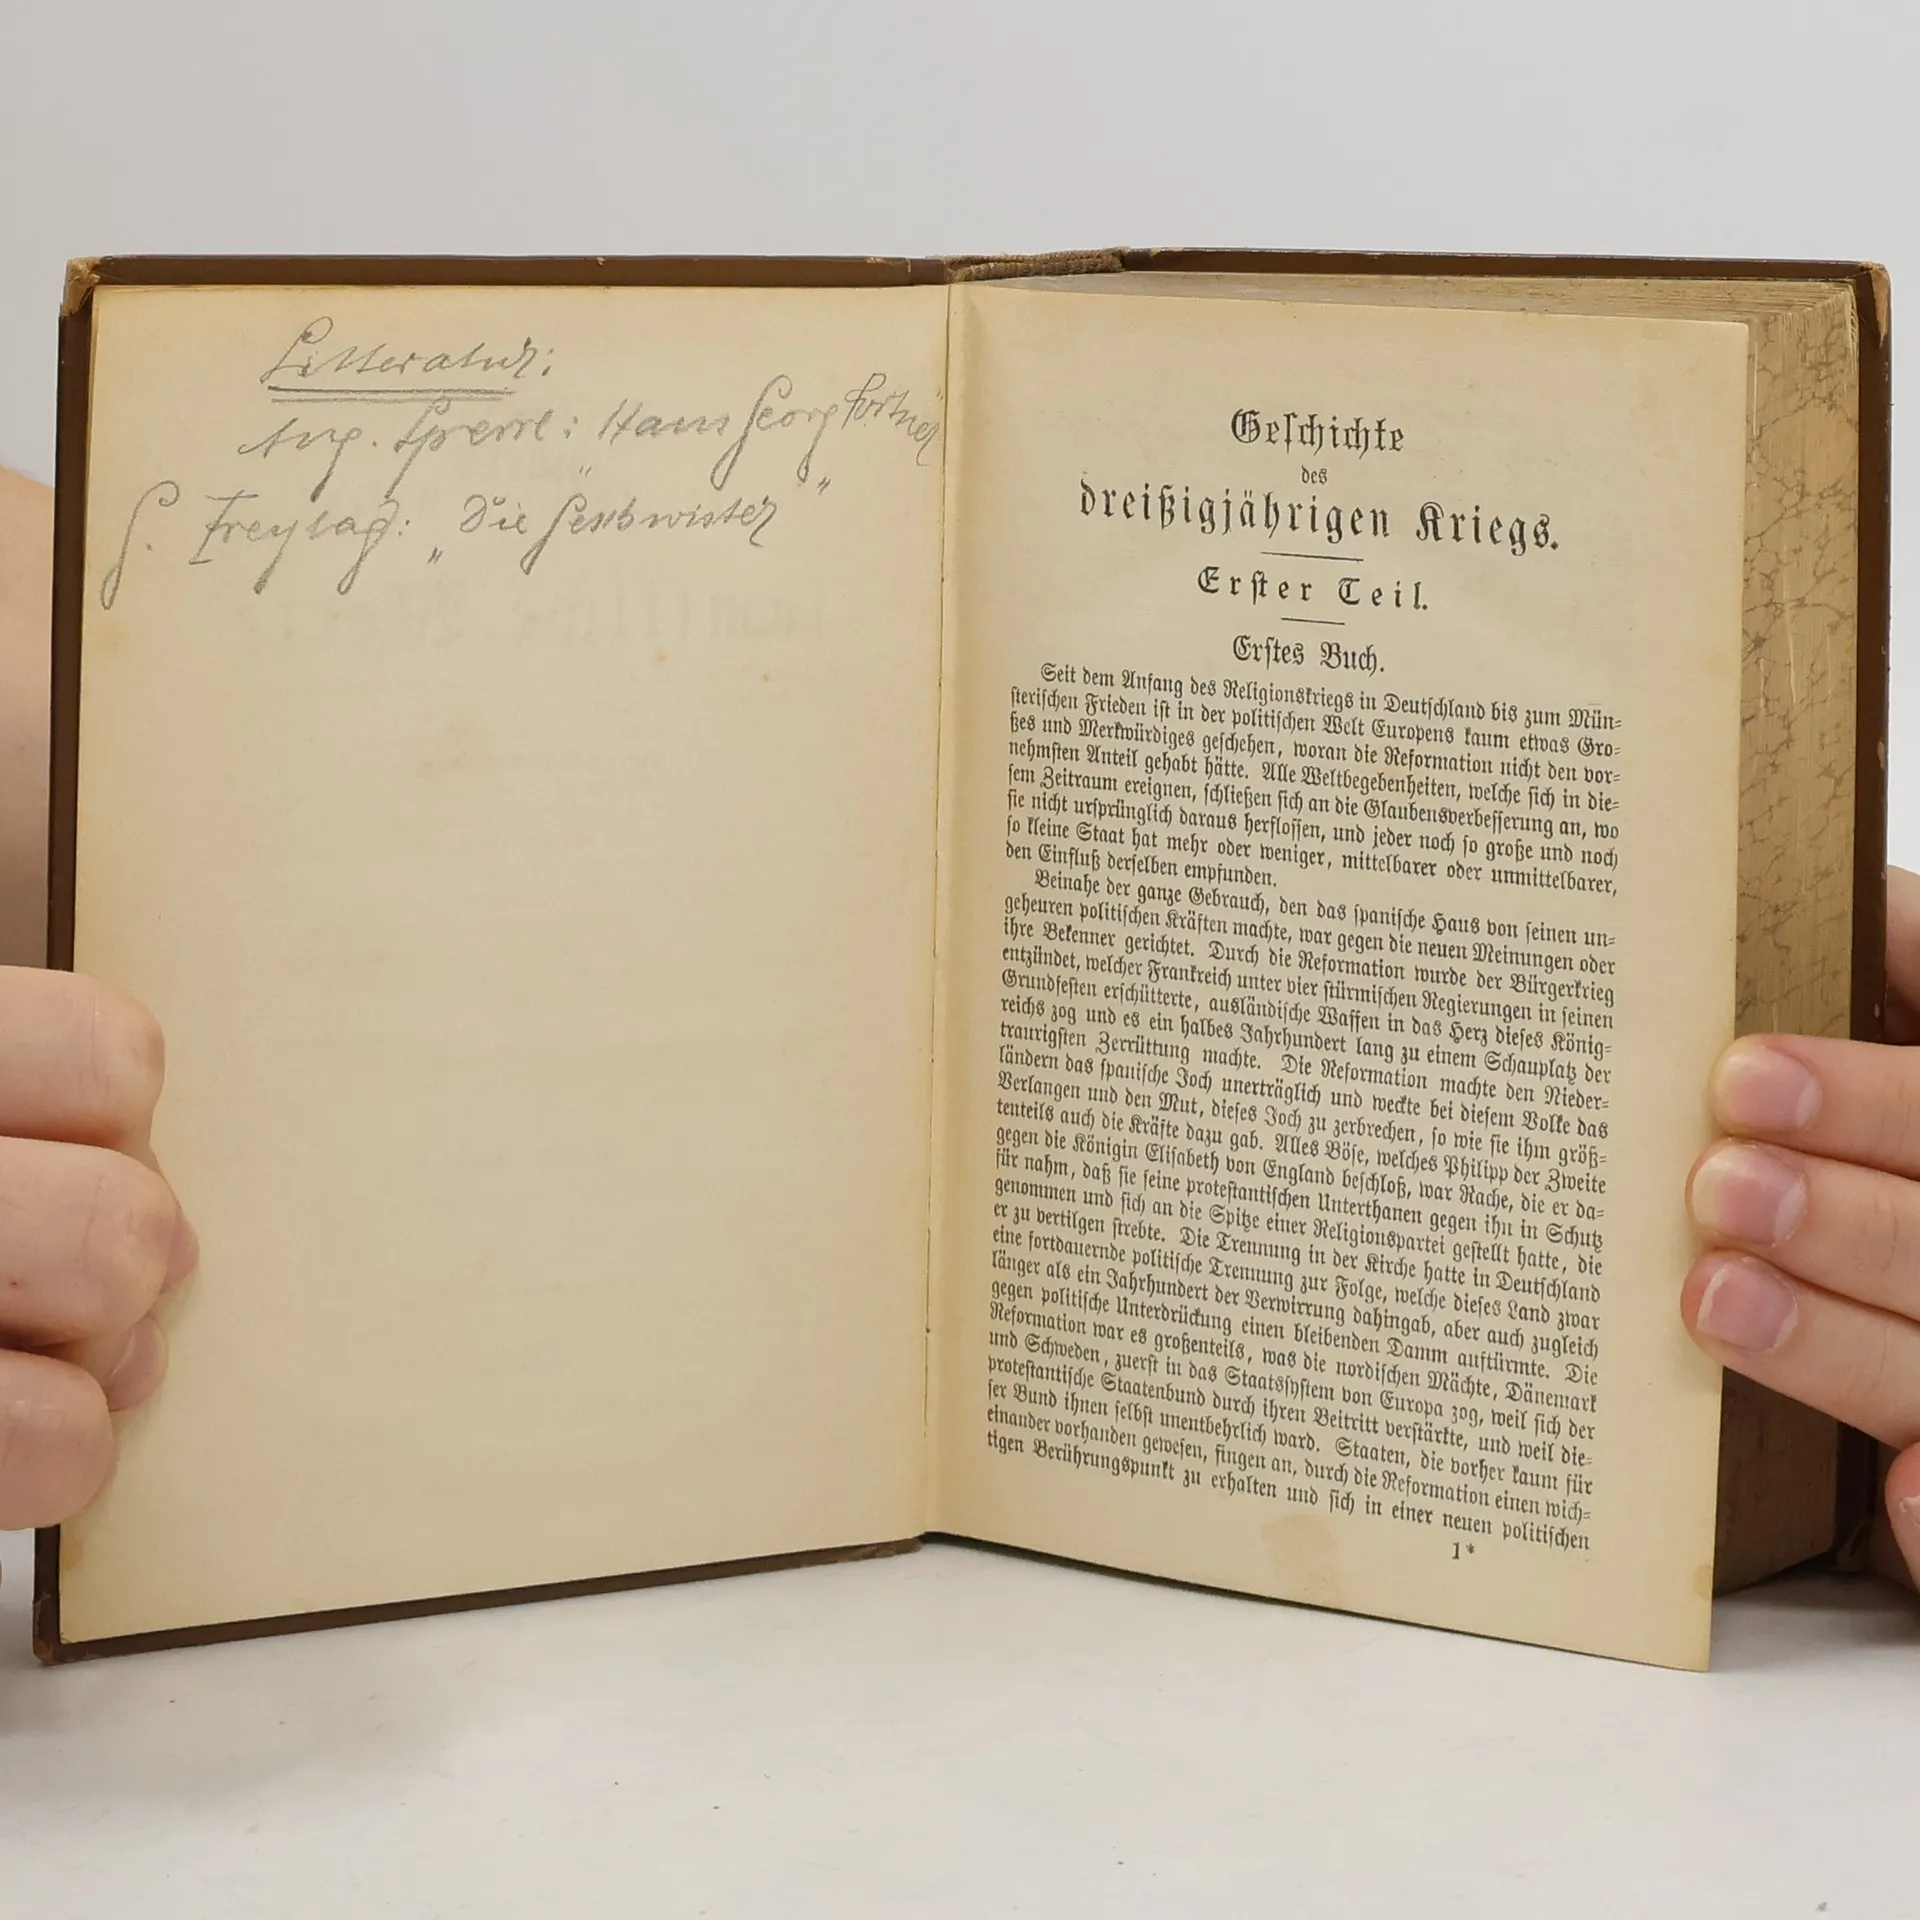 Litteratur:
Aug. Sperrl: Hans Georg Portner
G. Freytag: „Die Geschwister"
Geschichte
des
dreißigjährigen Kriegs.
Erster Teil.
Erstes Buch.
Seit dem Anfang des Religionskriegs in Deutschland bis zum Mün-
sterischen Frieden ist in der politischen Welt Europens kaum etwas Gro-
ßes und Merkwürdiges geschehen, woran die Reformation nicht den vor-
nehmsten Anteil gehabt hätte. Alle Weltbegebenheiten, welche sich in die-
sem Zeitraum ereignen, schließen sich an die Glaubensverbesserung an, wo
sie nicht ursprünglich daraus herflossen, und jeder noch so große und noch
so kleine Staat hat mehr oder weniger, mittelbarer oder unmittelbarer,
den Einfluß derselben empfunden.
Beinahe der ganze Gebrauch, den das spanische Haus von seinen un-
geheuren politischen Kräften machte, war gegen die neuen Meinungen oder
ihre Bekenner gerichtet. Durch die Reformation wurde der Bürgerkrieg
entzündet, welcher Frankreich unter vier stürmischen Regierungen in seinen
Grundfesten erschütterte, ausländische Waffen in das Herz dieses König-
reichs zog und es ein halbes Jahrhundert lang zu einem Schauplatz der
traurigsten Zerrüttung machte. Die Reformation machte den Nieder-
ländern das spanische Joch unerträglich und weckte bei diesem Volke das
Verlangen und den Mut, dieses Joch zu zerbrechen, so wie sie ihm größ-
tenteils auch die Kräfte dazu gab. Alles Böse, welches Philipp der Zweite
gegen die Königin Elisabeth von England beschloß, war Rache, die er da-
für nahm, daß sie seine protestantischen Unterthanen gegen ihn in Schutz
genommen und sich an die Spitze einer Religionspartei gestellt hatte, die
er zu vertilgen strebte. Die Trennung in der Kirche hatte in Deutschland
eine fortdauernde politische Trennung zur Folge, welche dieses Land zwar
länger als ein Jahrhundert der Verwirrung dahingab, aber auch zugleich
gegen politische Unterdrückung einen bleibenden Damm auftürmte. Die
Reformation war es großenteils, was die nordischen Mächte, Dänemark
und Schweden, zuerst in das Staatssystem von Europa zog, weil sich der
protestantische Staatenbund durch ihren Beitritt verstärkte, und weil die-
ser Bund ihnen selbst unentbehrlich ward. Staaten, die vorher kaum für
einander vorhanden gewesen, fingen an, durch die Reformation einen wich-
tigen Berührungspunkt zu erhalten und sich in einer neuen politischen
1*